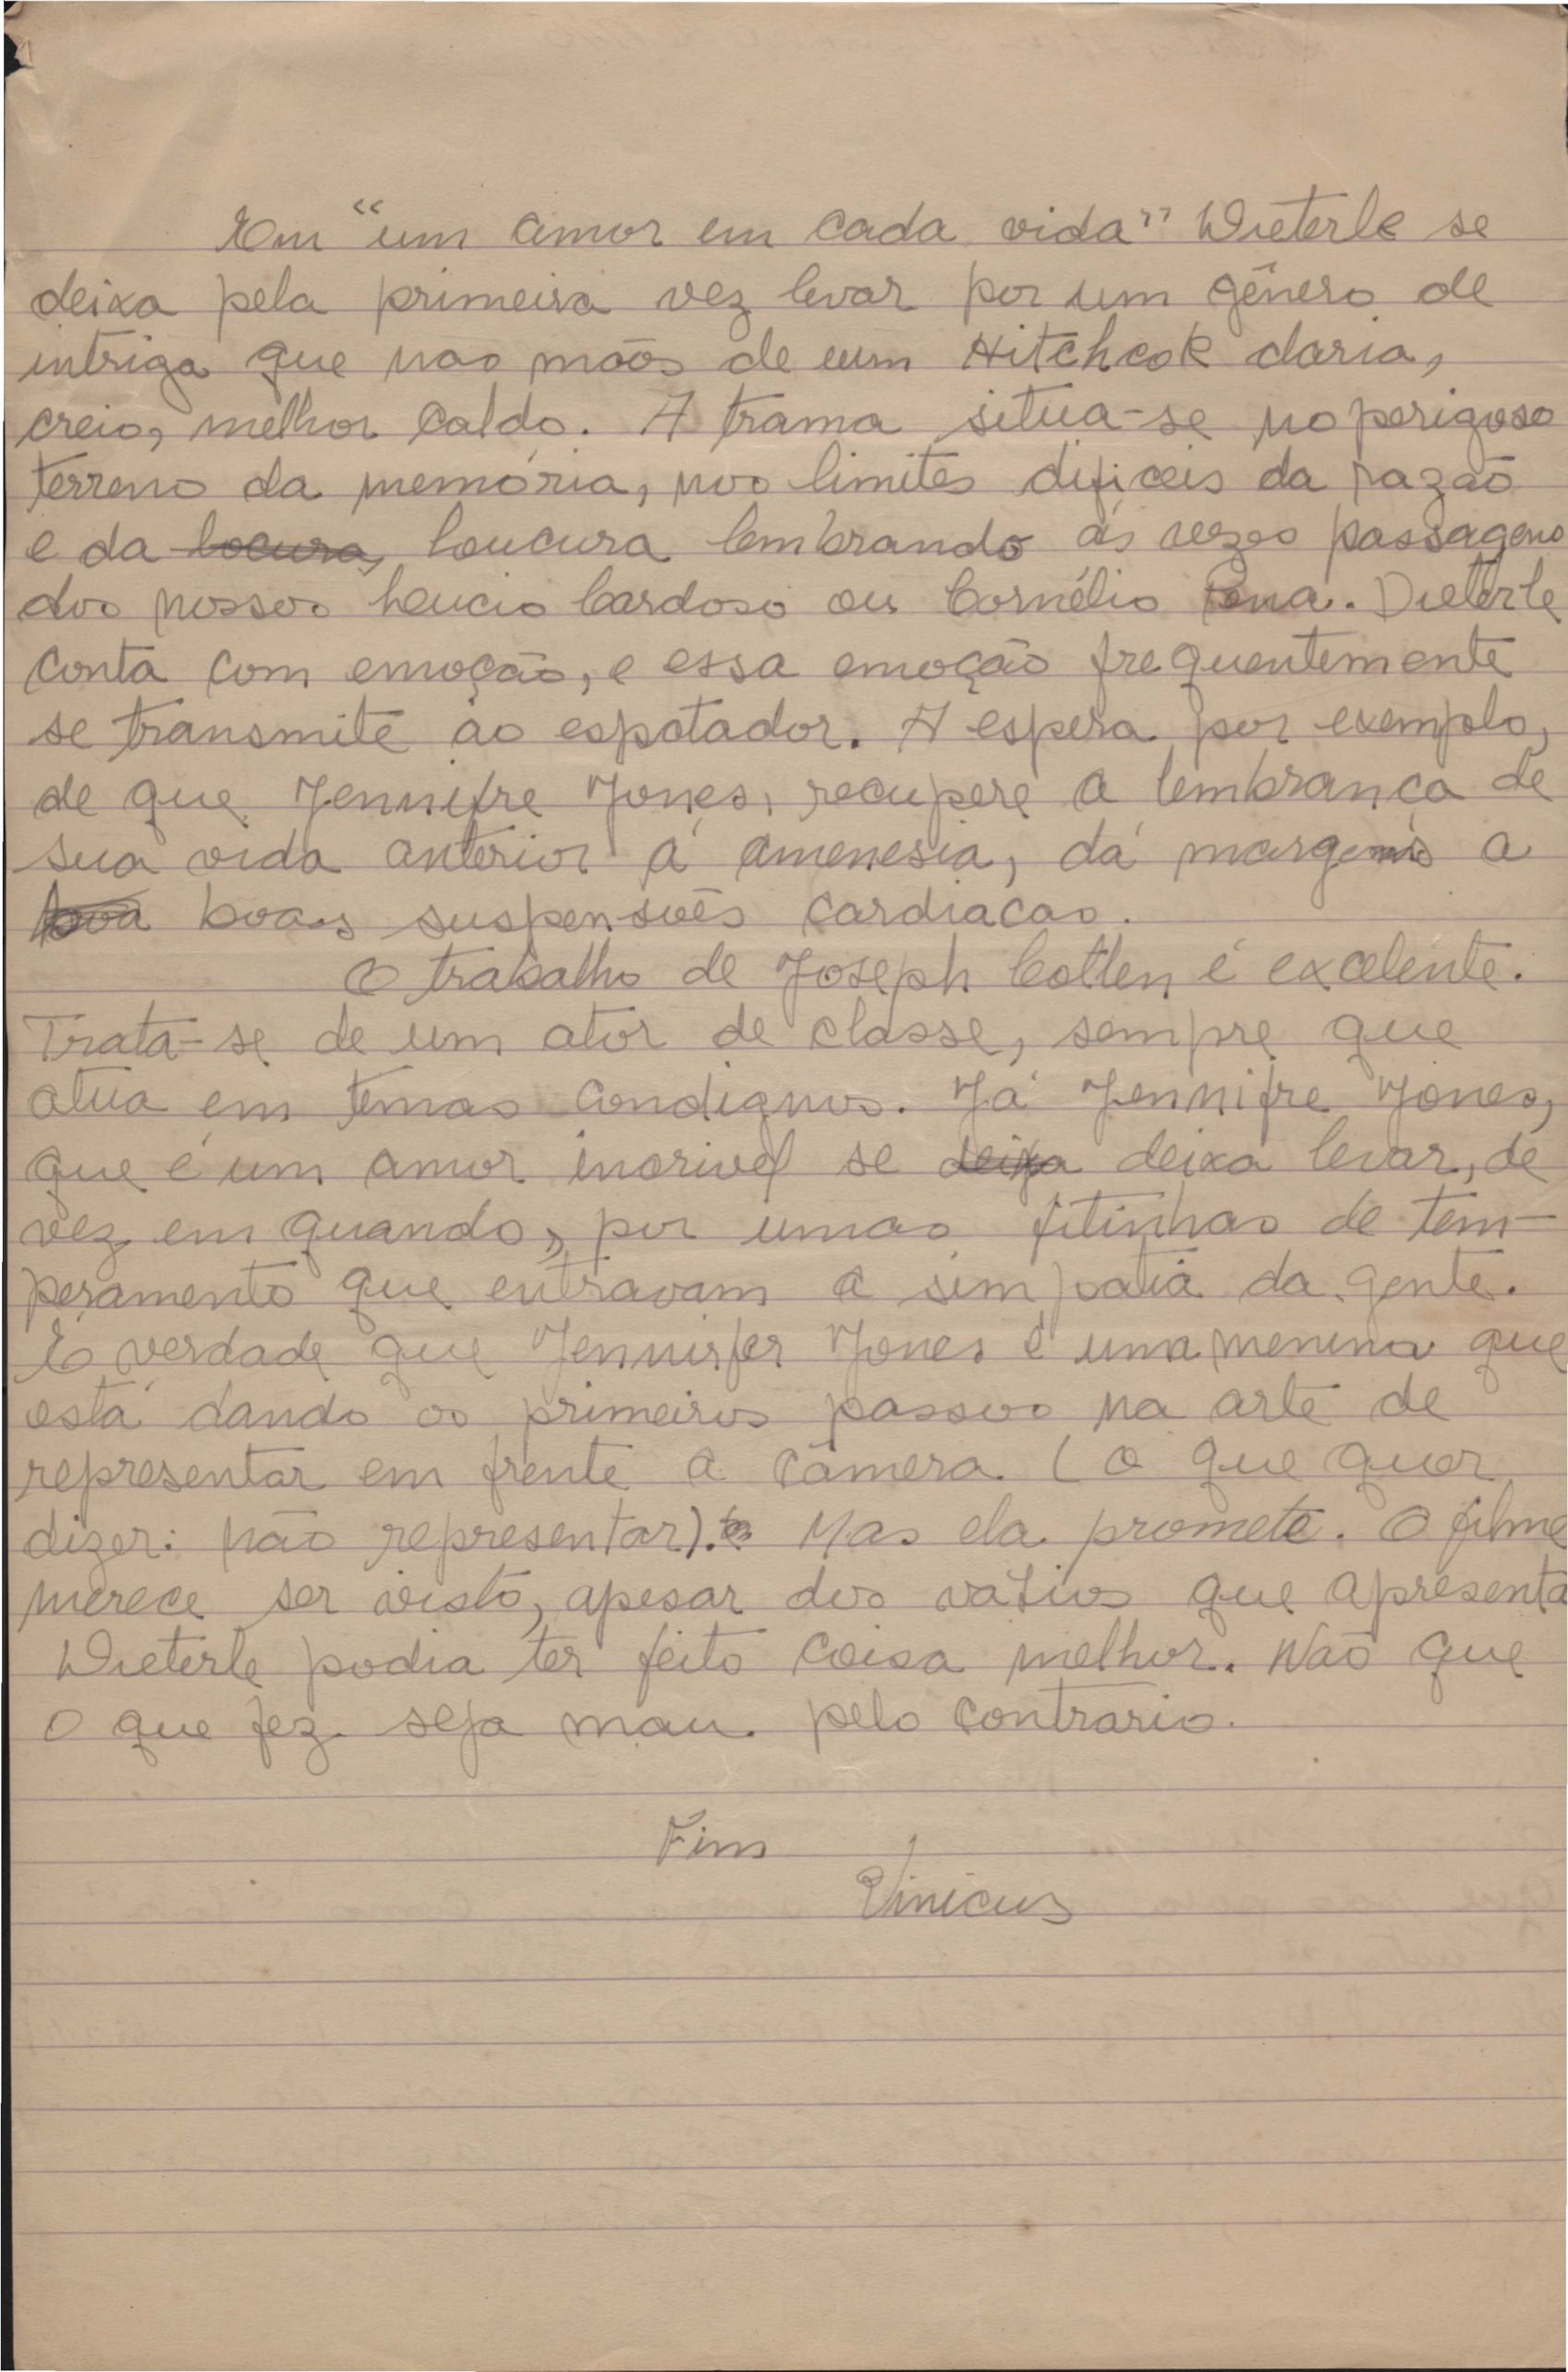 Em “um amor em cada vida” Dieterle se
deixa pela primeira vez levar por um gênero de
intriga que nas mãos de um Hitchcok daria,
creio, melhor caldo. A trama situa-se no perigoso
terreno da memória, nos limites dificeis da razão
e da locura, loucura lembrando ás vezes passagens
dos nossos Leucio Cardoso ou Cornélio Pena. Dieterle
conta com emoção, e essa emoção frequentemente
se transmite ao espotador. A espera por exemplo,
de que Jennifre Jones, recupere a lembrança de
sua vida anterior á amenesia, dá margens a
boa boas suspensões cardiacas.
O trabalho de Joseph Cotten é excelente.
Trata-se de um ator de classe, sempre que
atua em temas condignos. Já Jennifre Jones,
que é um amor incrivel se deixa deixa levar, de
vez em quando, por umas fitinhas de tem-
peramento que entravam a simpatia da gente.
É verdade que Jennisfer Jones é uma menina que
está dando os primeiros passos na arte de
representar em frente a câmera (o que quer
dizer: não representar). Mas ela promete. O filme
merece ser visto, apesar dos vasios que apresenta
Dieterle podia ter feito coisa melhor. Não que
o que fez seja mau. pelo contrario.
Fim
Vinicus